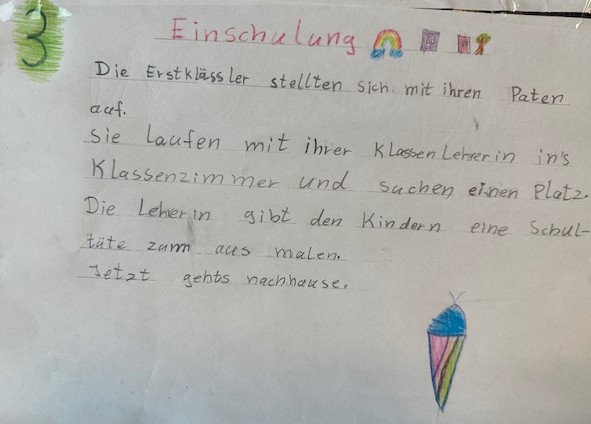 3
Einschulung
Die Erstklässler stellten sich mit ihren Paten
auf.
Sie laufen mit ihrer KlassenLehrerin in's
Klassenzimmer und suchen einen Platz.
Die Leherin gibt den Kindern eine Schul-
tüte zum aus malen.
Jetzt gehts nachhause.